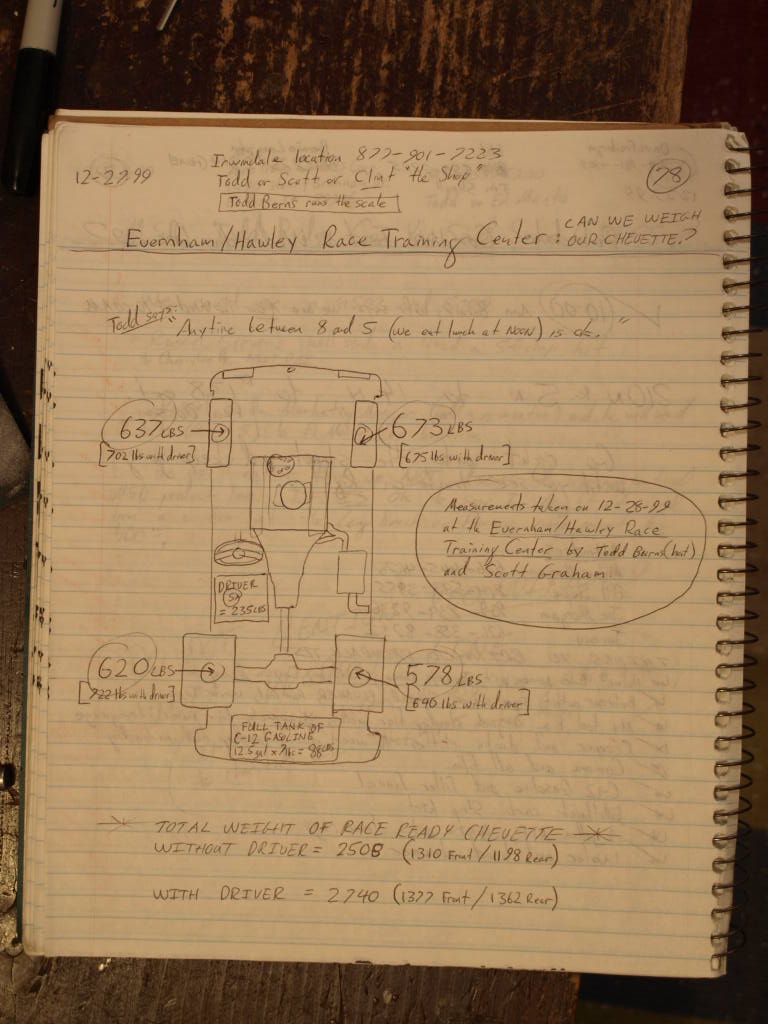 12-27-99
Irwindale location 877-901-7223
Todd or Scott or Clint "the Shop"
78
Todd Berns runs the scale
Evernham/Hawley Race Training Center: CAN WE WEIGH
OUR CHEVETTE?
Todd says: "Anytime between 8 and 5 (we eat lunch at NOON) is ok."
637 LBS
[702 lbs with driver]
673 LBS
[675 lbs with driver]
Measurements taken on 12-28-99
at the Evernham/Hawley Race
Training Center by Todd Berns (host)
and Scott Graham
DRIVER
= 235 LBS
620 LBS
[722 lbs with driver]
578 LBS
[640 lbs with driver]
FULL TANK OF
C-12 GASOLINE
12.5 gal x 7 lbs = 88 LBS
TOTAL WEIGHT OF RACE READY CHEVETTE
WITHOUT DRIVER = 2508 (1310 Front / 1198 Rear)
WITH DRIVER = 2740 (1377 Front / 1362 Rear)